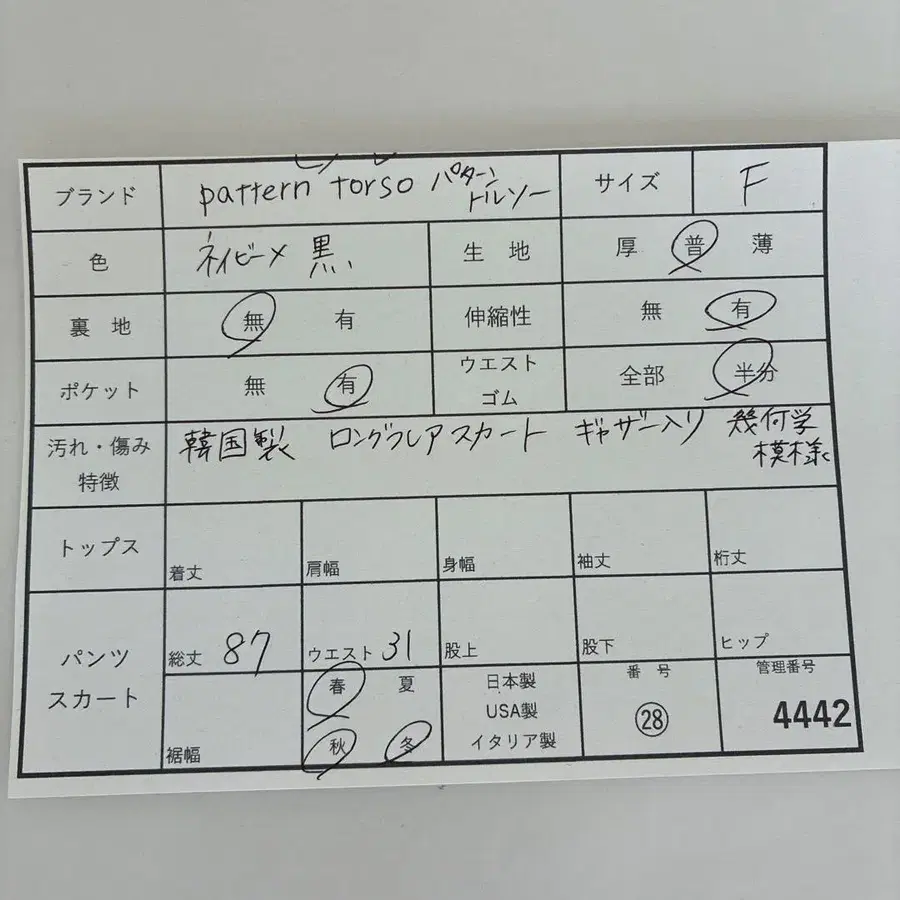 ブランド pattern torso パターン トルソー サイズ F
色 ネイビー× 黒 生 地 厚 普 薄
裏 地 無 有 伸縮性 無 有
ポケット 無 有 ウエスト ゴム 全部 半分
汚れ・傷み 特徴 韓国製 ロングフレアスカート ギャザー入り 幾何学 模様
トップス 着丈 肩幅 身幅 袖丈 桁丈
パンツ スカート 総丈 87 ウエスト 31 股上 股下 ヒップ
裾幅 春 夏 秋 冬 日本製 USA製 イタリア製 番 号 28 管理番号 4442